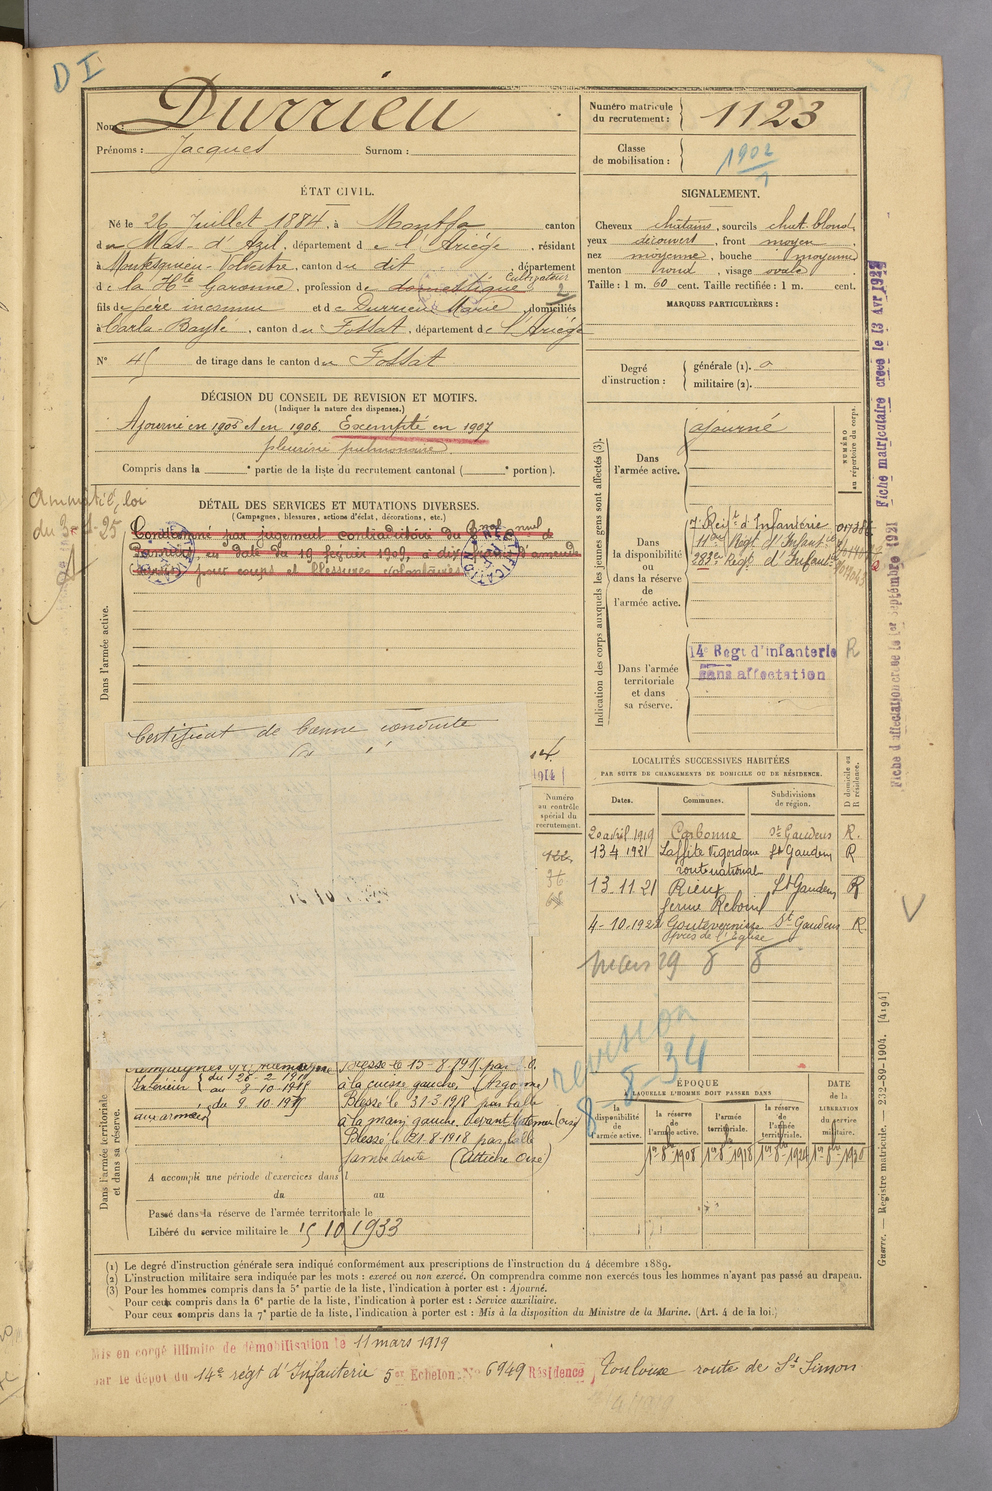 D I
Nom : Durrieu
Prénoms : Jacques Surnom :
Numéro matricule du recrutement : 1123
Classe de mobilisation : 1902
ÉTAT CIVIL.
Né le 26 Juillet 1884, à Montfa canton
du Mas-d'Azil, département de l'Ariége, résidant
à Montesquieu-Volvestre, canton du dit département
Cultivateur
de la Hte Garonne, profession de domestique 2
fils de père inconnu et de Durrieu Marie, domiciliés
à Carla-Bayle, canton du Fossat, département de l'Ariége
N° 45 de tirage dans le canton du Fossat
SIGNALEMENT.
Cheveux chatains, sourcils chat. blond,
yeux découvert, front moyen,
nez moyenne, bouche moyenne
menton rond, visage ovale
Taille : 1 m. 60 cent. Taille rectifiée : 1 m. cent.
MARQUES PARTICULIÈRES :
Degré d'instruction : générale (1). 0
militaire (2).
DÉCISION DU CONSEIL DE REVISION ET MOTIFS.
(Indiquer la nature des dispenses.)
Ajourné en 1905 et en 1906. Exempté en 1907
pleurésie pulmonaire
Compris dans la e partie de la liste du recrutement cantonal ( e portion).
Amnistié, loi
du 3-1-25
DÉTAIL DES SERVICES ET MUTATIONS DIVERSES.
(Campagnes, blessures, actions d'éclat, décorations, etc.)
Condamné par jugement contradictoire du Bnal nnel de
en date du 19 février 1909, à dix d'amende
pour coups et blessures volontaires
Dans l'armée active.
Certificat de bonne conduite
1914
Numéro au contrôle spécial du recrutement.
122
36
68
Indication des corps auxquels les jeunes gens sont affectés (3).
NUMÉRO au répertoire du corps.
Dans l'armée active.
ajourné
Dans la disponibilité ou dans la réserve de l'armée active.
7e Regt d'Infanterie
11eme Regt d'Infantie
283e Regt d'Infantie
Dans l'armée territoriale et dans sa réserve.
14e Regt d'infanterie R
Sans affectation
Fiche matriculaire créée le 13 Avr 1922
Fiche d'affectation créée le 1er Septembre 1921
LOCALITÉS SUCCESSIVES HABITÉES
PAR SUITE DE CHANGEMENTS DE DOMICILE OU DE RÉSIDENCE.
Dates. Communes. Subdivisions de région. D domicile ou R résidence.
20 avril 1919 Carbonne St Gaudens R.
13 4 1921 Laffite Vigordane St Gaudens R
route national
13.11.21 Rieux St Gaudens R
ferme Reboul
4-10.1922 Goutevernisse St Gaudens R
près de l'Eglise
mars 29 8 8
revision
8-8-34
ÉPOQUE
À LAQUELLE L'HOMME DOIT PASSER DANS
DATE de la LIBÉRATION du service militaire.
la disponibilité de l'armée active.
la réserve de l'armée active.
l'armée territoriale.
la réserve de l'armée territoriale.
1er 8bre 1908 1er 8bre 1918 1er 8bre 1924 1er 8bre 1930
Dans l'armée territoriale et dans sa réserve.
Intérieur { du 26-2-1915
au 8-10-1915
aux armées { du 9.10.1915
Blessé le 15-8-1915 par
à la cuisse gauche, (Argonne)
Blessé le 31-3-1918 par balle
à la main gauche, devant (Oise)
Blessé le 21-8-1918 par balle
Jambe droite (Attichy Oise)
A accompli une période d'exercices dans l
du au
Passé dans la réserve de l'armée territoriale le
Libéré du service militaire le 15 10 1933
(1) Le degré d'instruction générale sera indiqué conformément aux prescriptions de l'instruction du 4 décembre 1889.
(2) L'instruction militaire sera indiquée par les mots : exercé ou non exercé. On comprendra comme non exercés tous les hommes n'ayant pas passé au drapeau.
(3) Pour les hommes compris dans la 5e partie de la liste, l'indication à porter est : Ajourné.
Pour ceux compris dans la 6e partie de la liste, l'indication à porter est : Service auxiliaire.
Pour ceux compris dans la 7e partie de la liste, l'indication à porter est : Mis à la disposition du Ministre de la Marine. (Art. 4 de la loi.)
Guerre. — Registre matricule. — 232-89-1904. [4194]
Mis en congé illimité de démobilisation le 11 mars 1919
par le dépôt du 14e régt d'Infanterie 5er Echelon No 6949 Résidence Toulouse route de St Simon